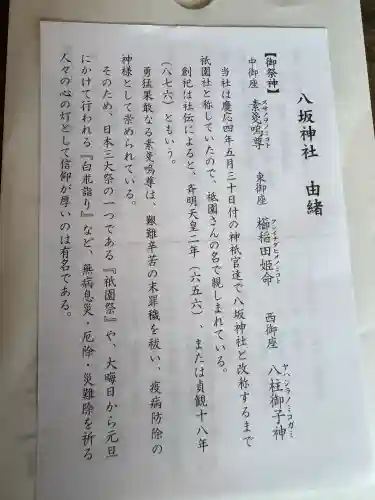 八坂神社　由緒
【御祭神】
中御座　素戔嗚尊　東御座　櫛稲田姫命　西御座　八柱御子神
スサノヲノミコト　クシイナダヒメノミコト　ヤハシラノミコガミ
当社は慶応四年五月三十日付の神祇官達で八坂神社と改称するまで
祇園社と称していたので、祇園さんの名で親しまれている。
創祀は社伝によると、斉明天皇二年（六五六）、または貞観十八年
（八七六）ともいう。
勇猛果敢なる素戔嗚尊は、艱難辛苦の末罪穢を祓い、疫病防除の
神様として崇められている。
そのため、日本三大祭の一つである『祇園祭』や、大晦日から元旦
にかけて行われる『白朮詣り』など、無病息災・厄除・災難除を祈る
人々の心の灯として信仰が厚いのは有名である。